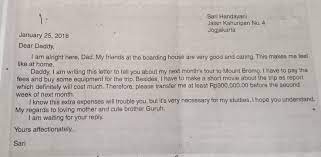 Sari Handayani
Jalan Kahuripan No. 4
Jogjakarta
January 25, 2018
Dear Daddy,
I am alright here, Dad. My friends at the boarding house are very good and caring. This makes me feel
like at home.
Daddy, I am writing this letter to tell you about my next month's tour to Mount Bromo. I have to pay the
fees and buy some equipment for the trip. Besides, I have to make a short movie about the trip as report
which definitely will cost much. Therefore, please transfer me at least Rp900,000.00 before the second
week of next month.
I know this extra expenses will trouble you, but it's very necessary for my studies. I hope you understand.
My regards to loving mother and cute brother Guruh.
I am waiting for your reply.
Yours affectionately,
Sari